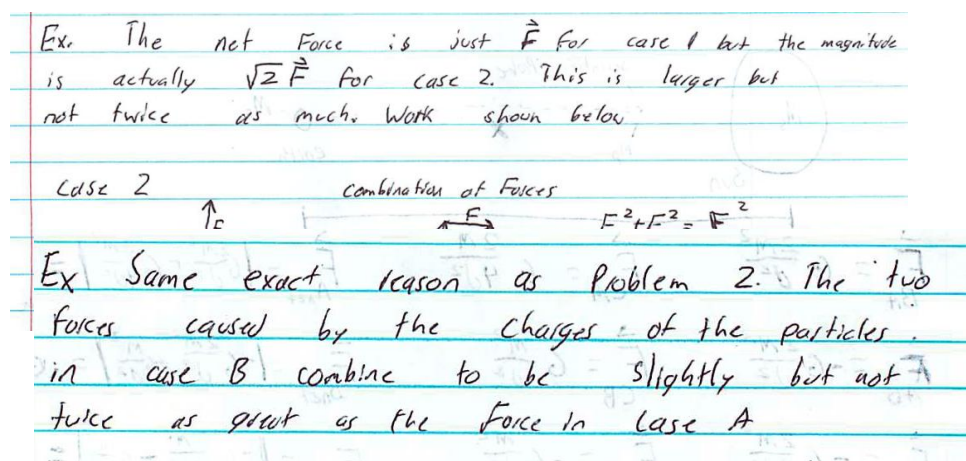 Ex. The net Force is just F⃗ for case 1 but the magnitude
is actually √2 F⃗ for case 2. This is larger but
not twice as much. Work shown below
Case 2 Combination of Forces
↑F F F²+F²=F²
Ex Same exact reason as Problem 2. The two
forces caused by the charges of the particles
in case B combine to be slightly but not
twice as great as the Force in Case A